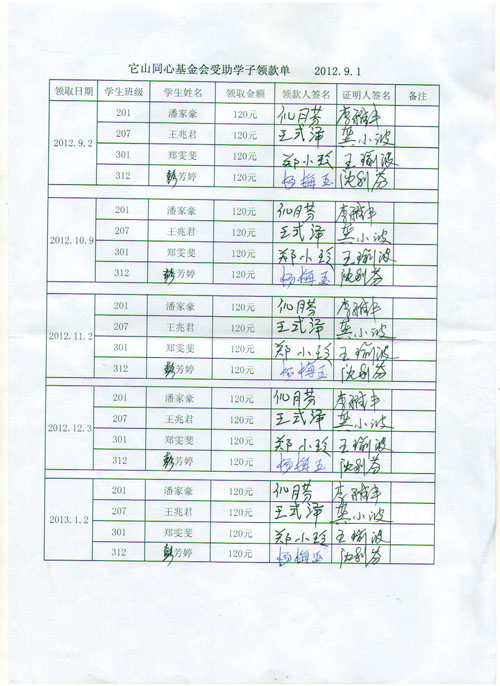 它山同心基金会受助学子领款单 2012.9.1
领取日期 学生班级 学生姓名 领取金额 领款人签名 证明人签名 备注
2012.9.2
201 潘家豪 120元 仉月芬
207 王兆君 120元 王式泽 龚小波
301 郑雯斐 120元 郑小玲 王瑜波
312 彭芳婷 120元 杨梅玉 沈利芬
2012.10.9
201 潘家豪 120元 仉月芬
207 王兆君 120元 王式泽 龚小波
301 郑雯斐 120元 郑小玲 王瑜波
312 彭芳婷 120元 杨梅玉 沈利芬
2012.11.2
201 潘家豪 120元 仉月芬
207 王兆君 120元 王式泽 龚小波
301 郑雯斐 120元 郑小玲 王瑜波
312 彭芳婷 120元 杨梅玉 沈利芬
2012.12.3
201 潘家豪 120元 仉月芬
207 王兆君 120元 王式泽 龚小波
301 郑雯斐 120元 郑小玲 王瑜波
312 彭芳婷 120元 杨梅玉 沈利芬
2013.1.2
201 潘家豪 120元 仉月芬
207 王兆君 120元 王式泽 龚小波
301 郑雯斐 120元 郑小玲 王瑜波
312 彭芳婷 120元 杨梅玉 沈利芬